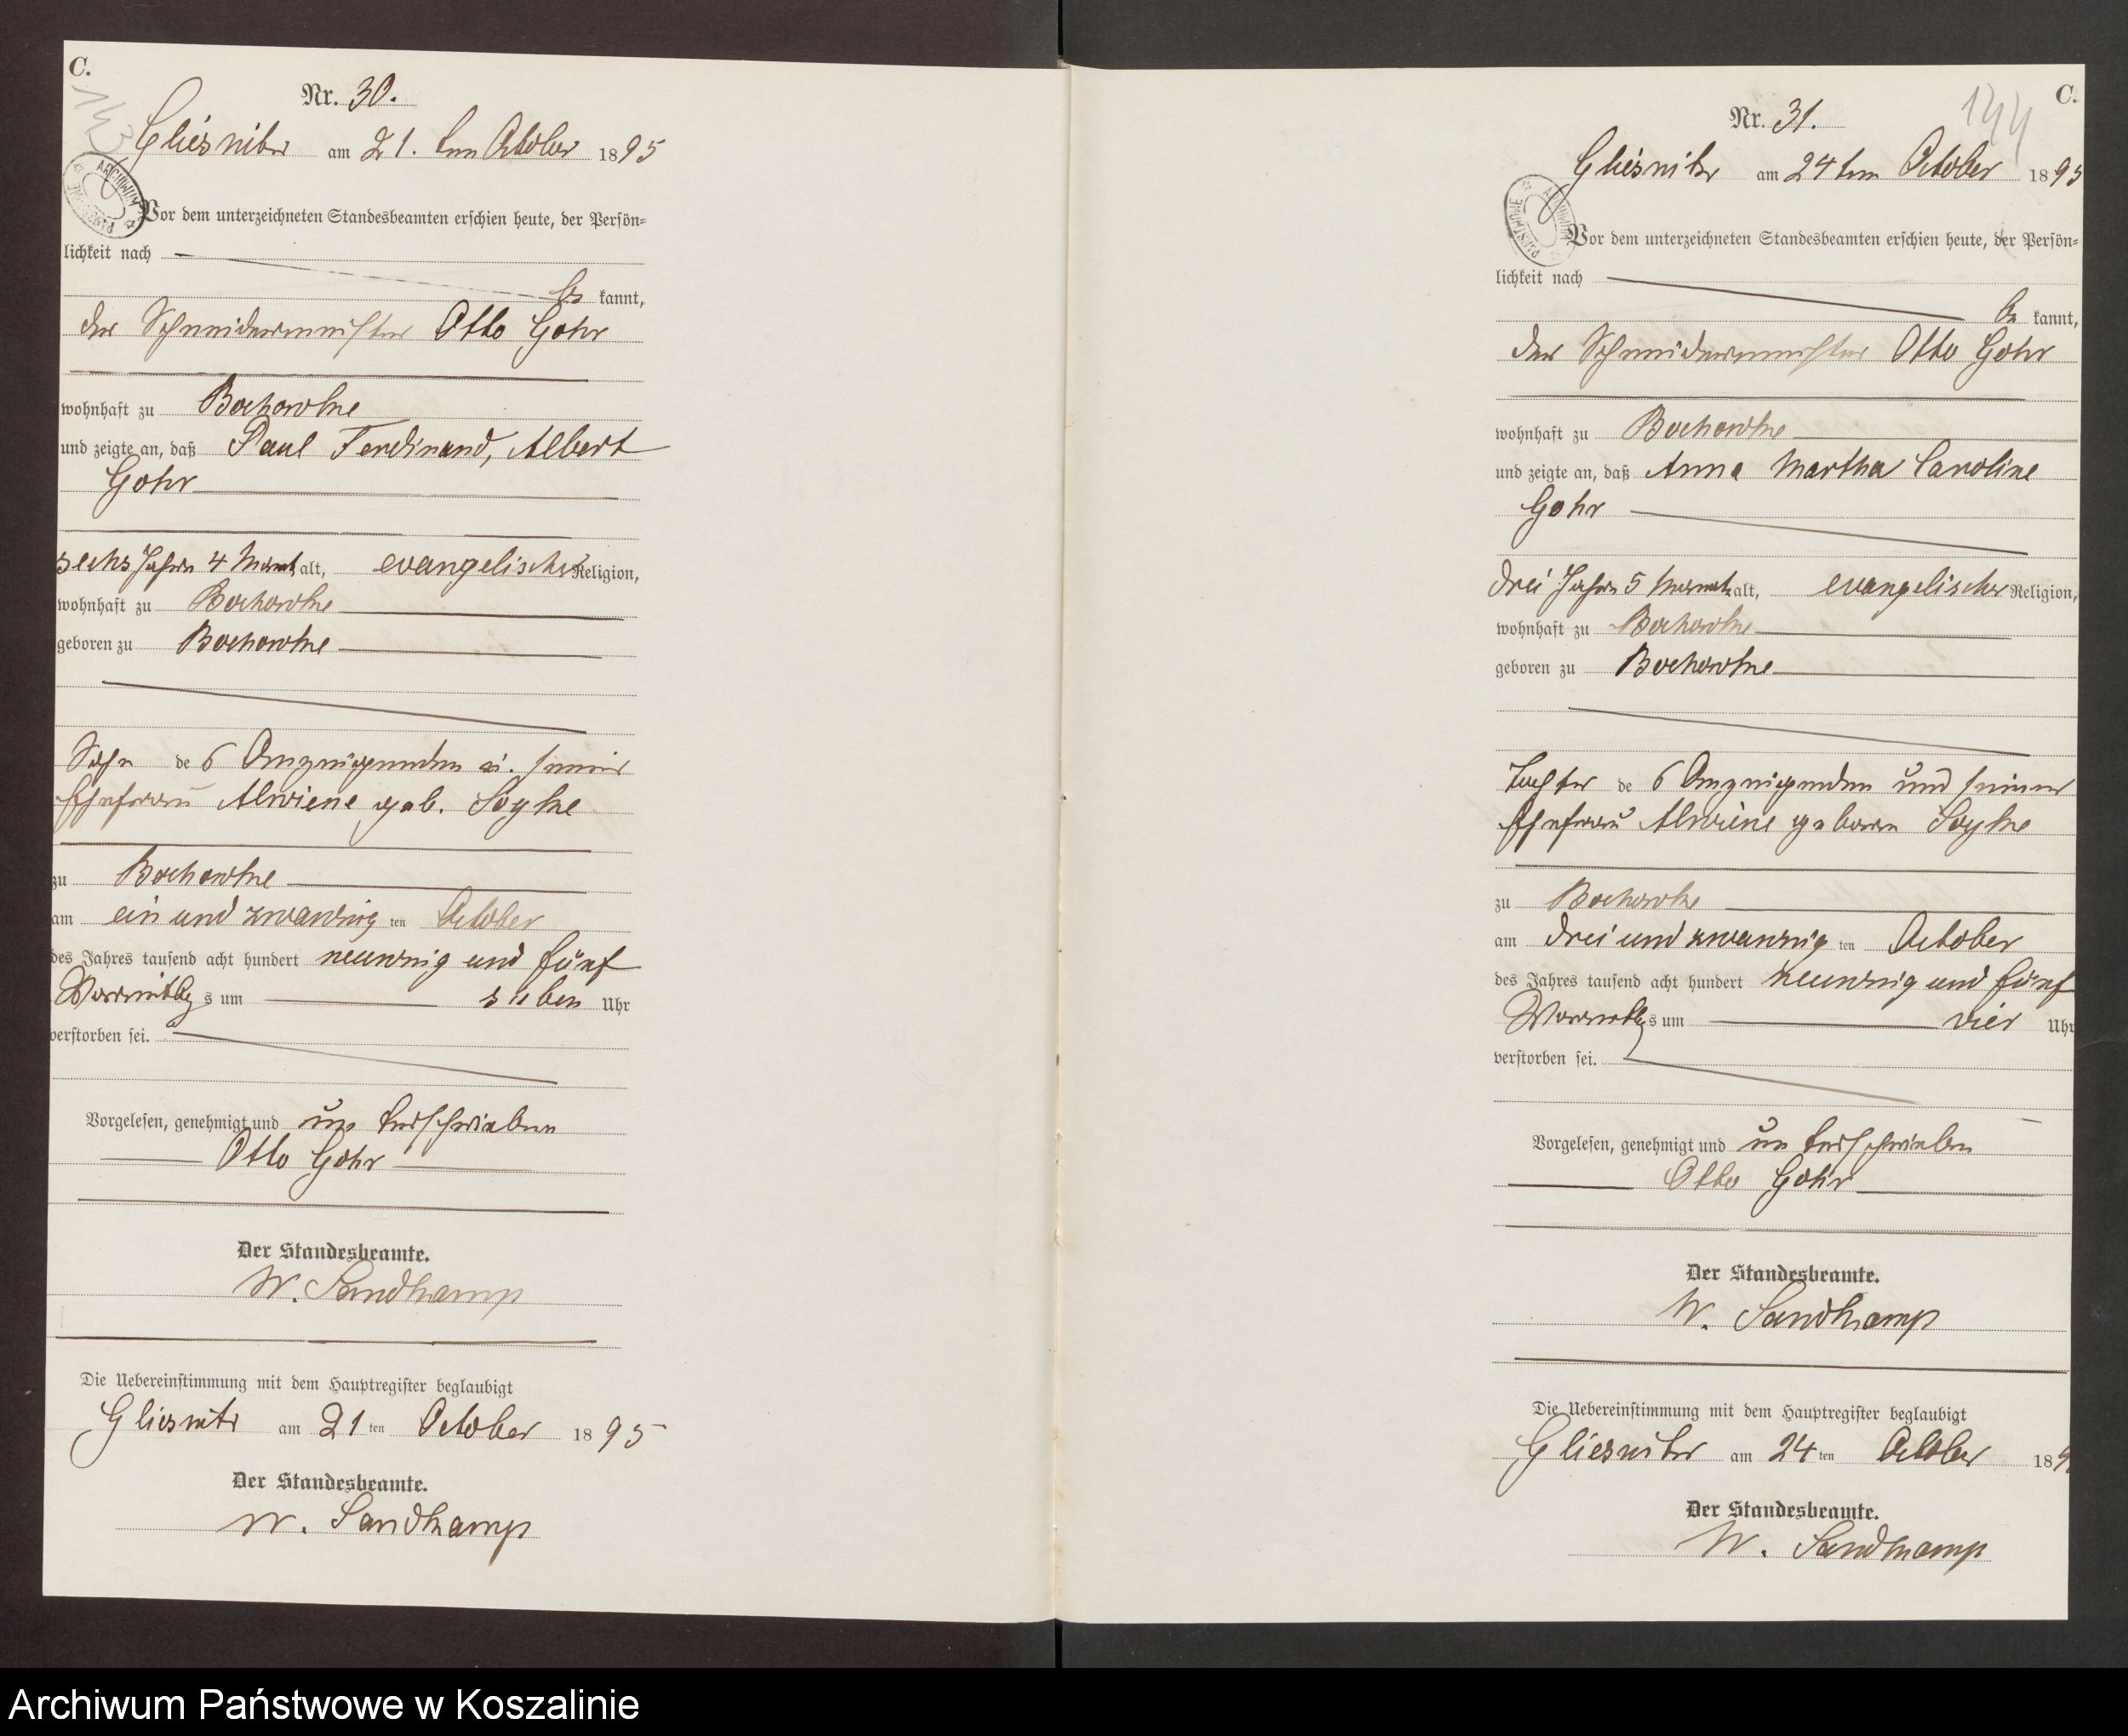 C.
143
Nr. 30.
Gliesnitz am 21. ten October 1895
ARCHIWUM PAŃSTWOWE
Vor dem unterzeichneten Standesbeamten erschien heute, der Persön=
lichkeit nach
be kannt,
der Schneidermeister Otto Gohr
wohnhaft zu Bochowke
und zeigte an, daß Paul Ferdinand, Albert
Gohr
sechs Jahre 4 Monat alt, evangelischer Religion,
wohnhaft zu Bochowke
geboren zu Bochowke
Sohn des Anzeigenden u. seiner
Ehefrau Alwiene geb.
zu Bochowke
am ein und zwanzig ten October
des Jahres tausend acht hundert neunzig und fünf
Vormittags um sieben Uhr
verstorben sei.
Vorgelesen, genehmigt und unterschrieben
Otto Gohr
Der Standesbeamte.
W. Sandkamp
Die Uebereinstimmung mit dem Hauptregister beglaubigt
Gliesnitz am 21 ten October 1895
Der Standesbeamte.
W. Sandkamp
C.
144
Nr. 31.
Gliesnitz am 24 ten October 1895
ARCHIWUM PAŃSTWOWE
Vor dem unterzeichneten Standesbeamten erschien heute, der Persön=
lichkeit nach
be kannt,
der Schneidermeister Otto Gohr
wohnhaft zu Bochowke
und zeigte an, daß Anna Martha Caroline
Gohr
drei Jahre 5 Monate alt, evangelischer Religion,
wohnhaft zu Bochowke
geboren zu Bochowke
Tochter des Anzeigenden und seiner
Ehefrau Alwiene geboren
zu Bochowke
am drei und zwanzig ten October
des Jahres tausend acht hundert neunzig und fünf
Vormittags um vier Uhr
verstorben sei.
Vorgelesen, genehmigt und unterschrieben
Otto Gohr
Der Standesbeamte.
W. Sandkamp
Die Uebereinstimmung mit dem Hauptregister beglaubigt
Gliesnitz am 24 ten October 189
Der Standesbeamte.
W. Sandkamp
Archiwum Państwowe w Koszalinie